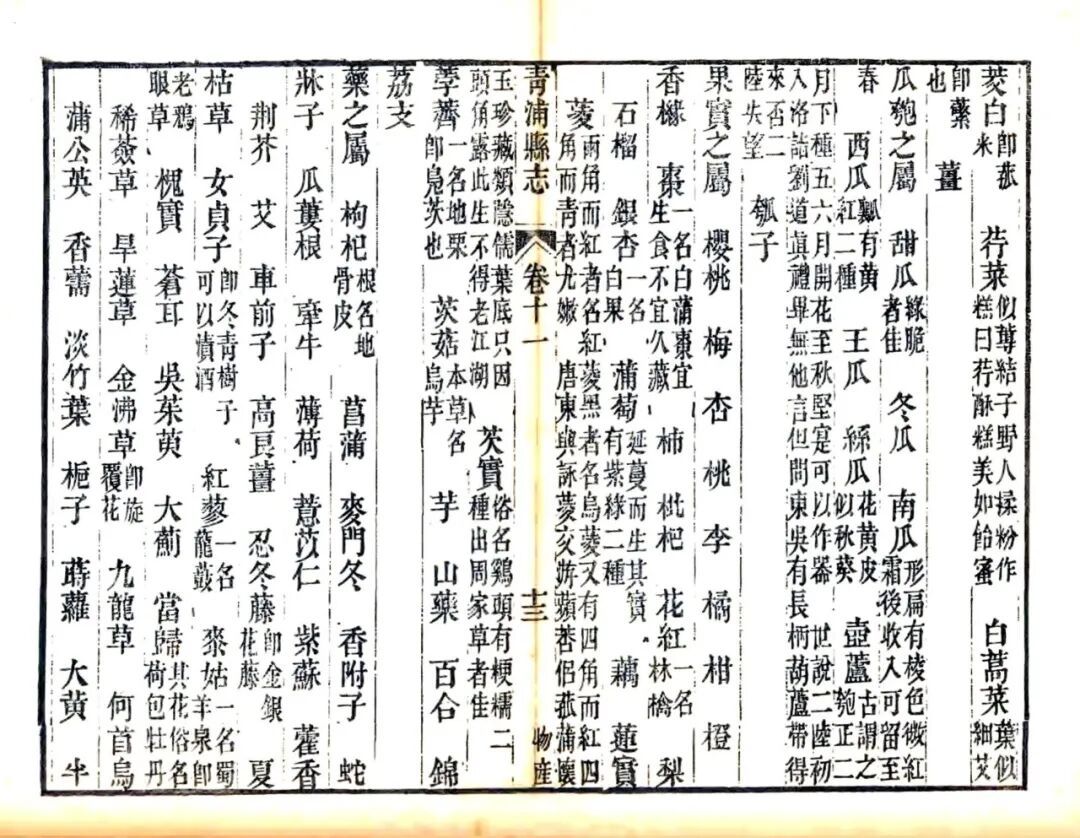 茭白 卽菰米 荇菜 似蓴結子野人揉粉作糕曰荇酥糕美如飴蜜 白蒿菜 葉似細艾
卽蘩也 薑
瓜匏之屬 甜瓜 綠脆者佳 冬瓜 南瓜 形扁有棱色微紅霜後收入可留至
春 西瓜 瓤有黃紅二種 王瓜 絲瓜 花黃皮似秋葵 壺蘆 古謂之匏正二
月下種五六月開花至秋堅寔可以作器 世說二陸初入洛詣劉道眞禮畢無他言但問東吳有長柄葫蘆帶得
來否二陸失望 瓠子
果實之屬 櫻桃 梅 杏 桃 李 橘 柑 橙
香櫞 棗 一名白蒲棗宜生食不宜久藏 柿 枇杷 花紅 一名林檎 梨
石榴 銀杏 一名白果 蒲萄 延蔓而生其實有紫綠二種 藕 蓮實
菱 兩角而紅者名紅菱黑者名烏菱又有四角而紅四角而青者尤嫩 唐東與詠菱交蘋侶菰蒲懷
青浦縣志 卷十一 物產 十三
玉珍藏類隱儒葉底只因頭角露此生不得老江湖 芡實 俗名鷄頭有梗糯二種出周家草者佳
荸薺 一名地栗卽鳧茨也 茨菇 本草名烏芋 芋 山藥 百合 錦
荔支
藥之屬 枸杞 根名地骨皮 菖蒲 麥門冬 香附子 蛇
牀子 瓜蔞根 牽牛 薄荷 薏苡仁 紫蘇 藿香
荆芥 艾 車前子 高良薑 忍冬藤 卽金銀花藤 夏
枯草 女貞子 卽冬青樹子可以漬酒 紅蓼 一名蘢鼓 麥姑 一名蜀羊泉卽
老鴉眼草 槐實 蒼耳 吳茱萸 大薊 當歸 其花俗名荷包牡丹
稀薟草 旱蓮草 金沸草 卽旋覆花 九龍草 何首烏
蒲公英 香薷 淡竹葉 梔子 蒔蘿 大黃 牛